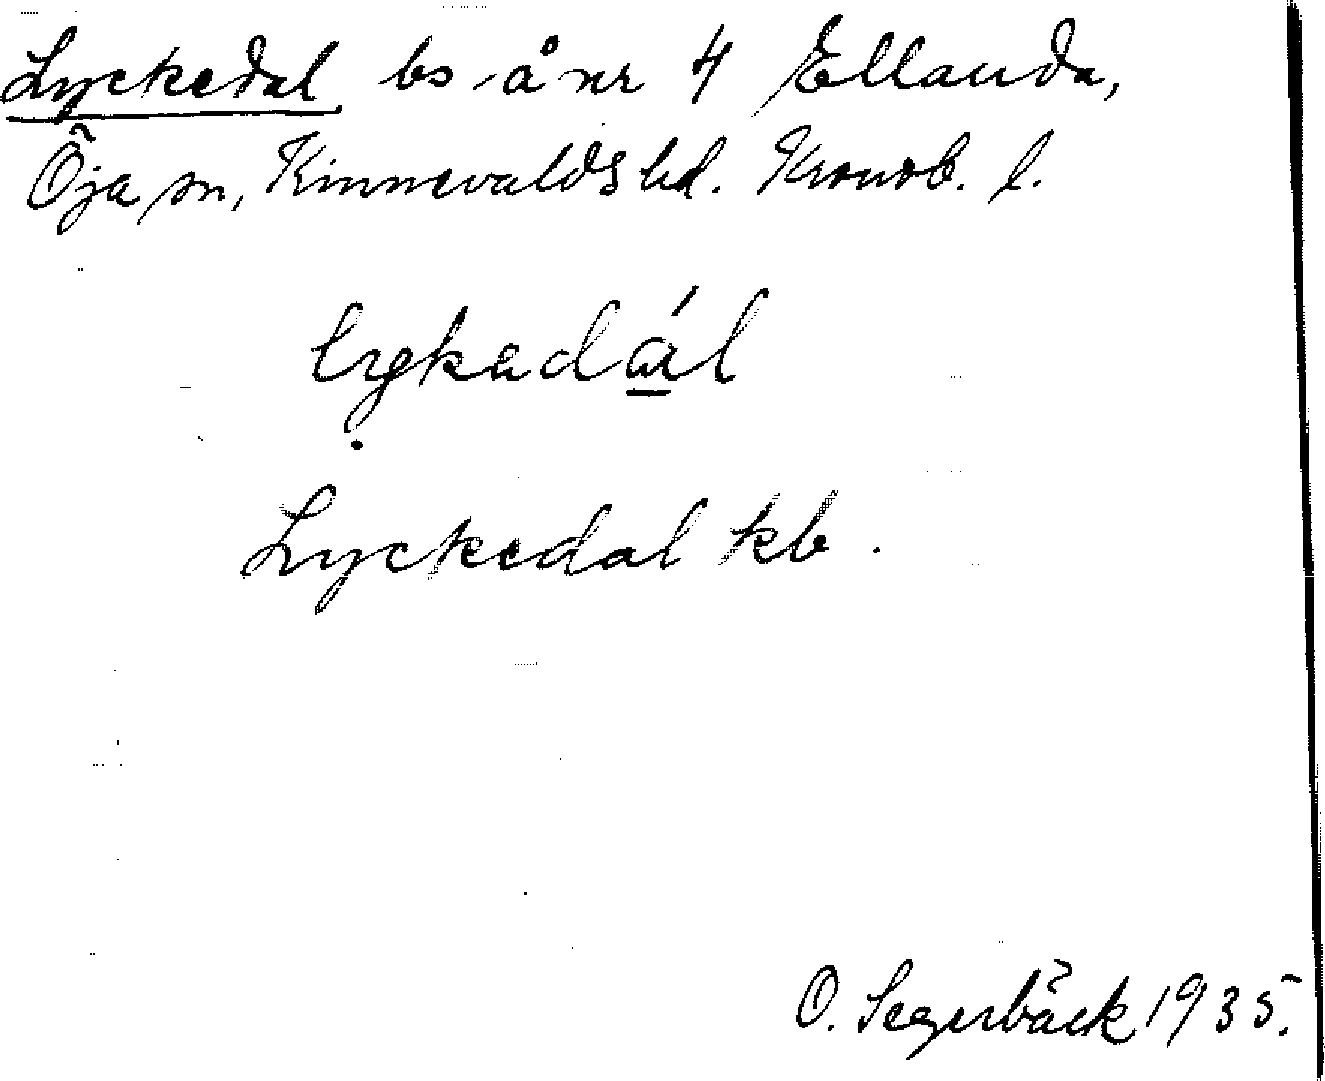 Lyckedal bs å nr 4 Ellanda,
Öja sn, Kinnevalds hd. Kronob. l.
lykadál
Lyckedal kb.
O. Segerbäck 1935.